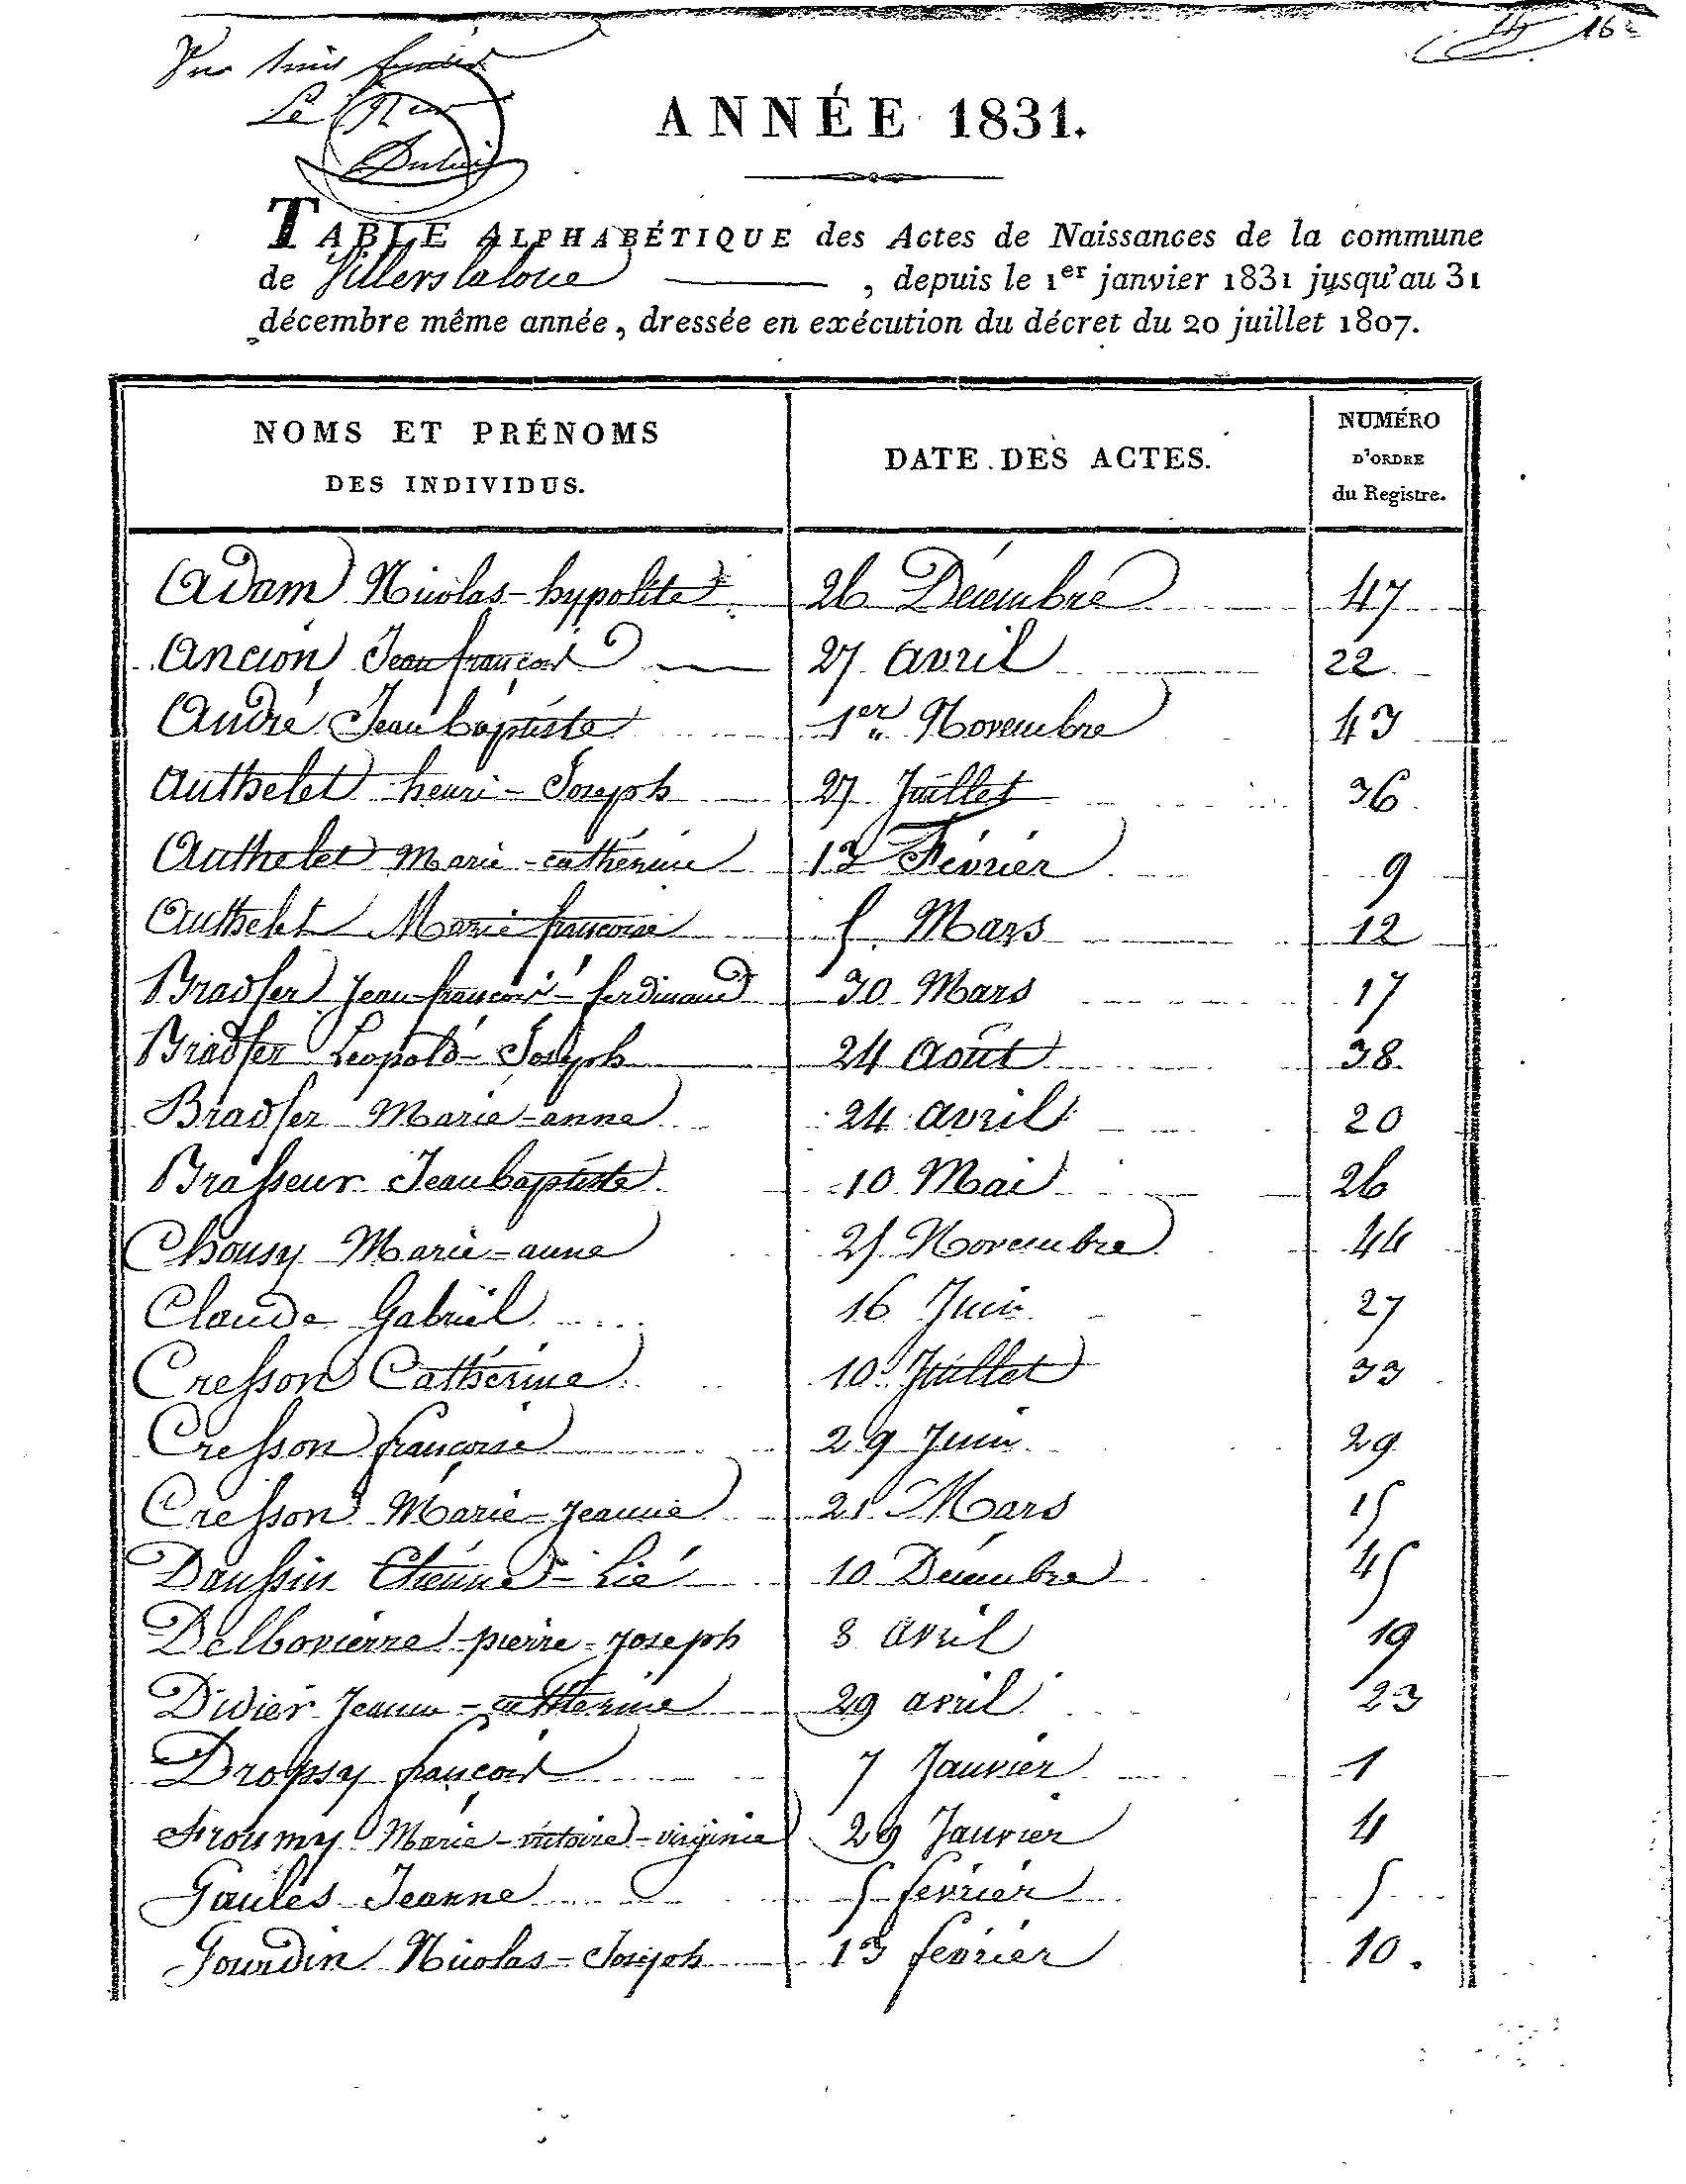 16
Le
ANNÉE 1831.
TABLE ALPHABÉTIQUE des Actes de Naissances de la commune
de Villers la loue, depuis le 1er janvier 1831 jusqu'au 31
décembre même année, dressée en exécution du décret du 20 juillet 1807.
NOMS ET PRÉNOMS DES INDIVIDUS. DATE DES ACTES. NUMÉRO D'ORDRE du Registre.
Adam Nicolas-hypolite 26 Décembre 47
Ancion Jean françois 27 avril 22
André Jean baptiste 1er Novembre 43
Authelet henri-Joseph 27 Juillet 36
Authelet Marie-cathérine 12 Février 9
Authelet Marie françoise 5 Mars 12
Bradfer Jean-françois-ferdinand 30 Mars 17
Bradfer Léopold-Joseph 24 Août 38
Bradfer Marie-anne 24 avril 20
Brasseur Jean baptiste 10 Mai 26
Chousy Marie-anne 25 Novembre 44
Claude Gabriel 16 Juin 27
Cresson Cathérine 10 Juillet 33
Cresson françoise 29 Juin 29
Cresson Marie-Jeanne 21 Mars 15
Daussin Etienne-Lié 10 Décembre 45
Delbovierre pierre-Joseph 8 avril 19
Didier Jeanne-cathérine 29 avril 23
Dropsy françois 7 Janvier 1
Froumy Marie-victoire-virginie 29 Janvier 4
Gaulés Jeanne 5 février 5
Gourdin Nicolas-Joseph 13 février 10.